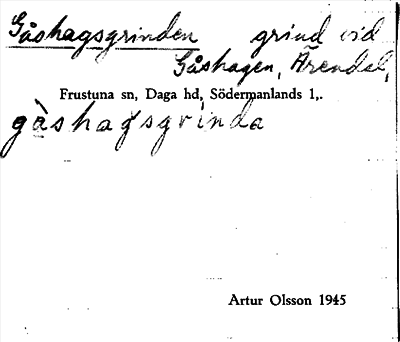 Gåshagsgrinden grind vid
Gåshagen, Ärendal,
Frustuna sn, Daga hd, Södermanlands l,.
gåshagsgrinda
Artur Olsson 1945